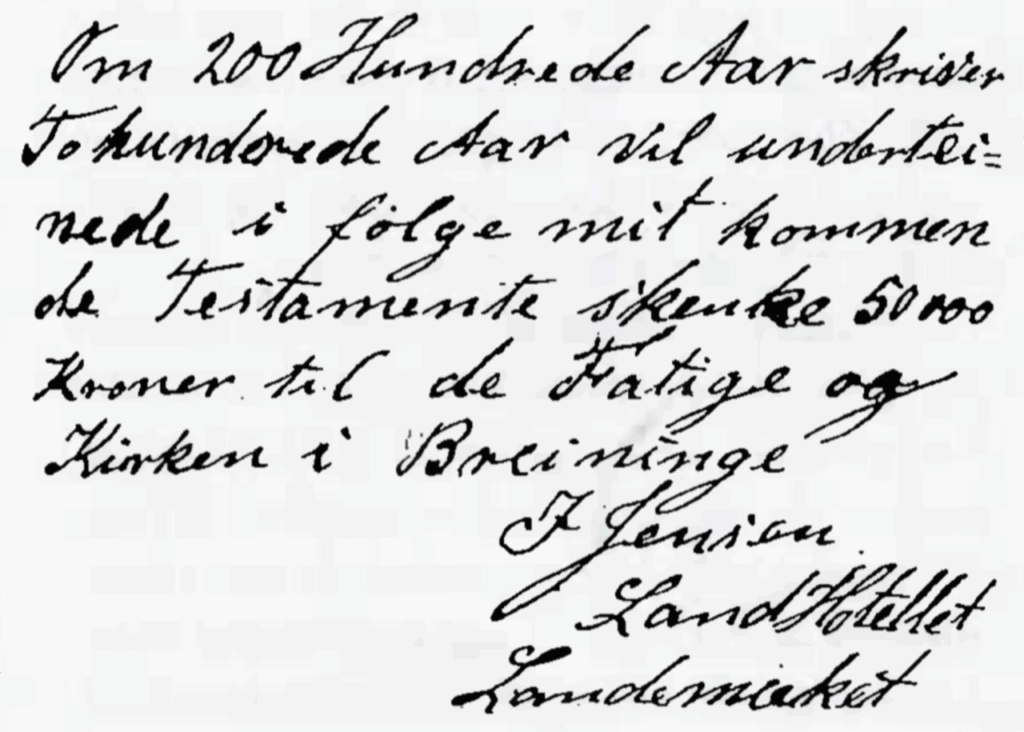 Om 200 Hundrede Aar skriver
Tohundrede Aar vil undertei=
nede i følge mit kommen
de Testamente skenke 50000
Kroner til de Fatige og
Kirken i Breininge
J Jensen
LandHotellet
Landemærket